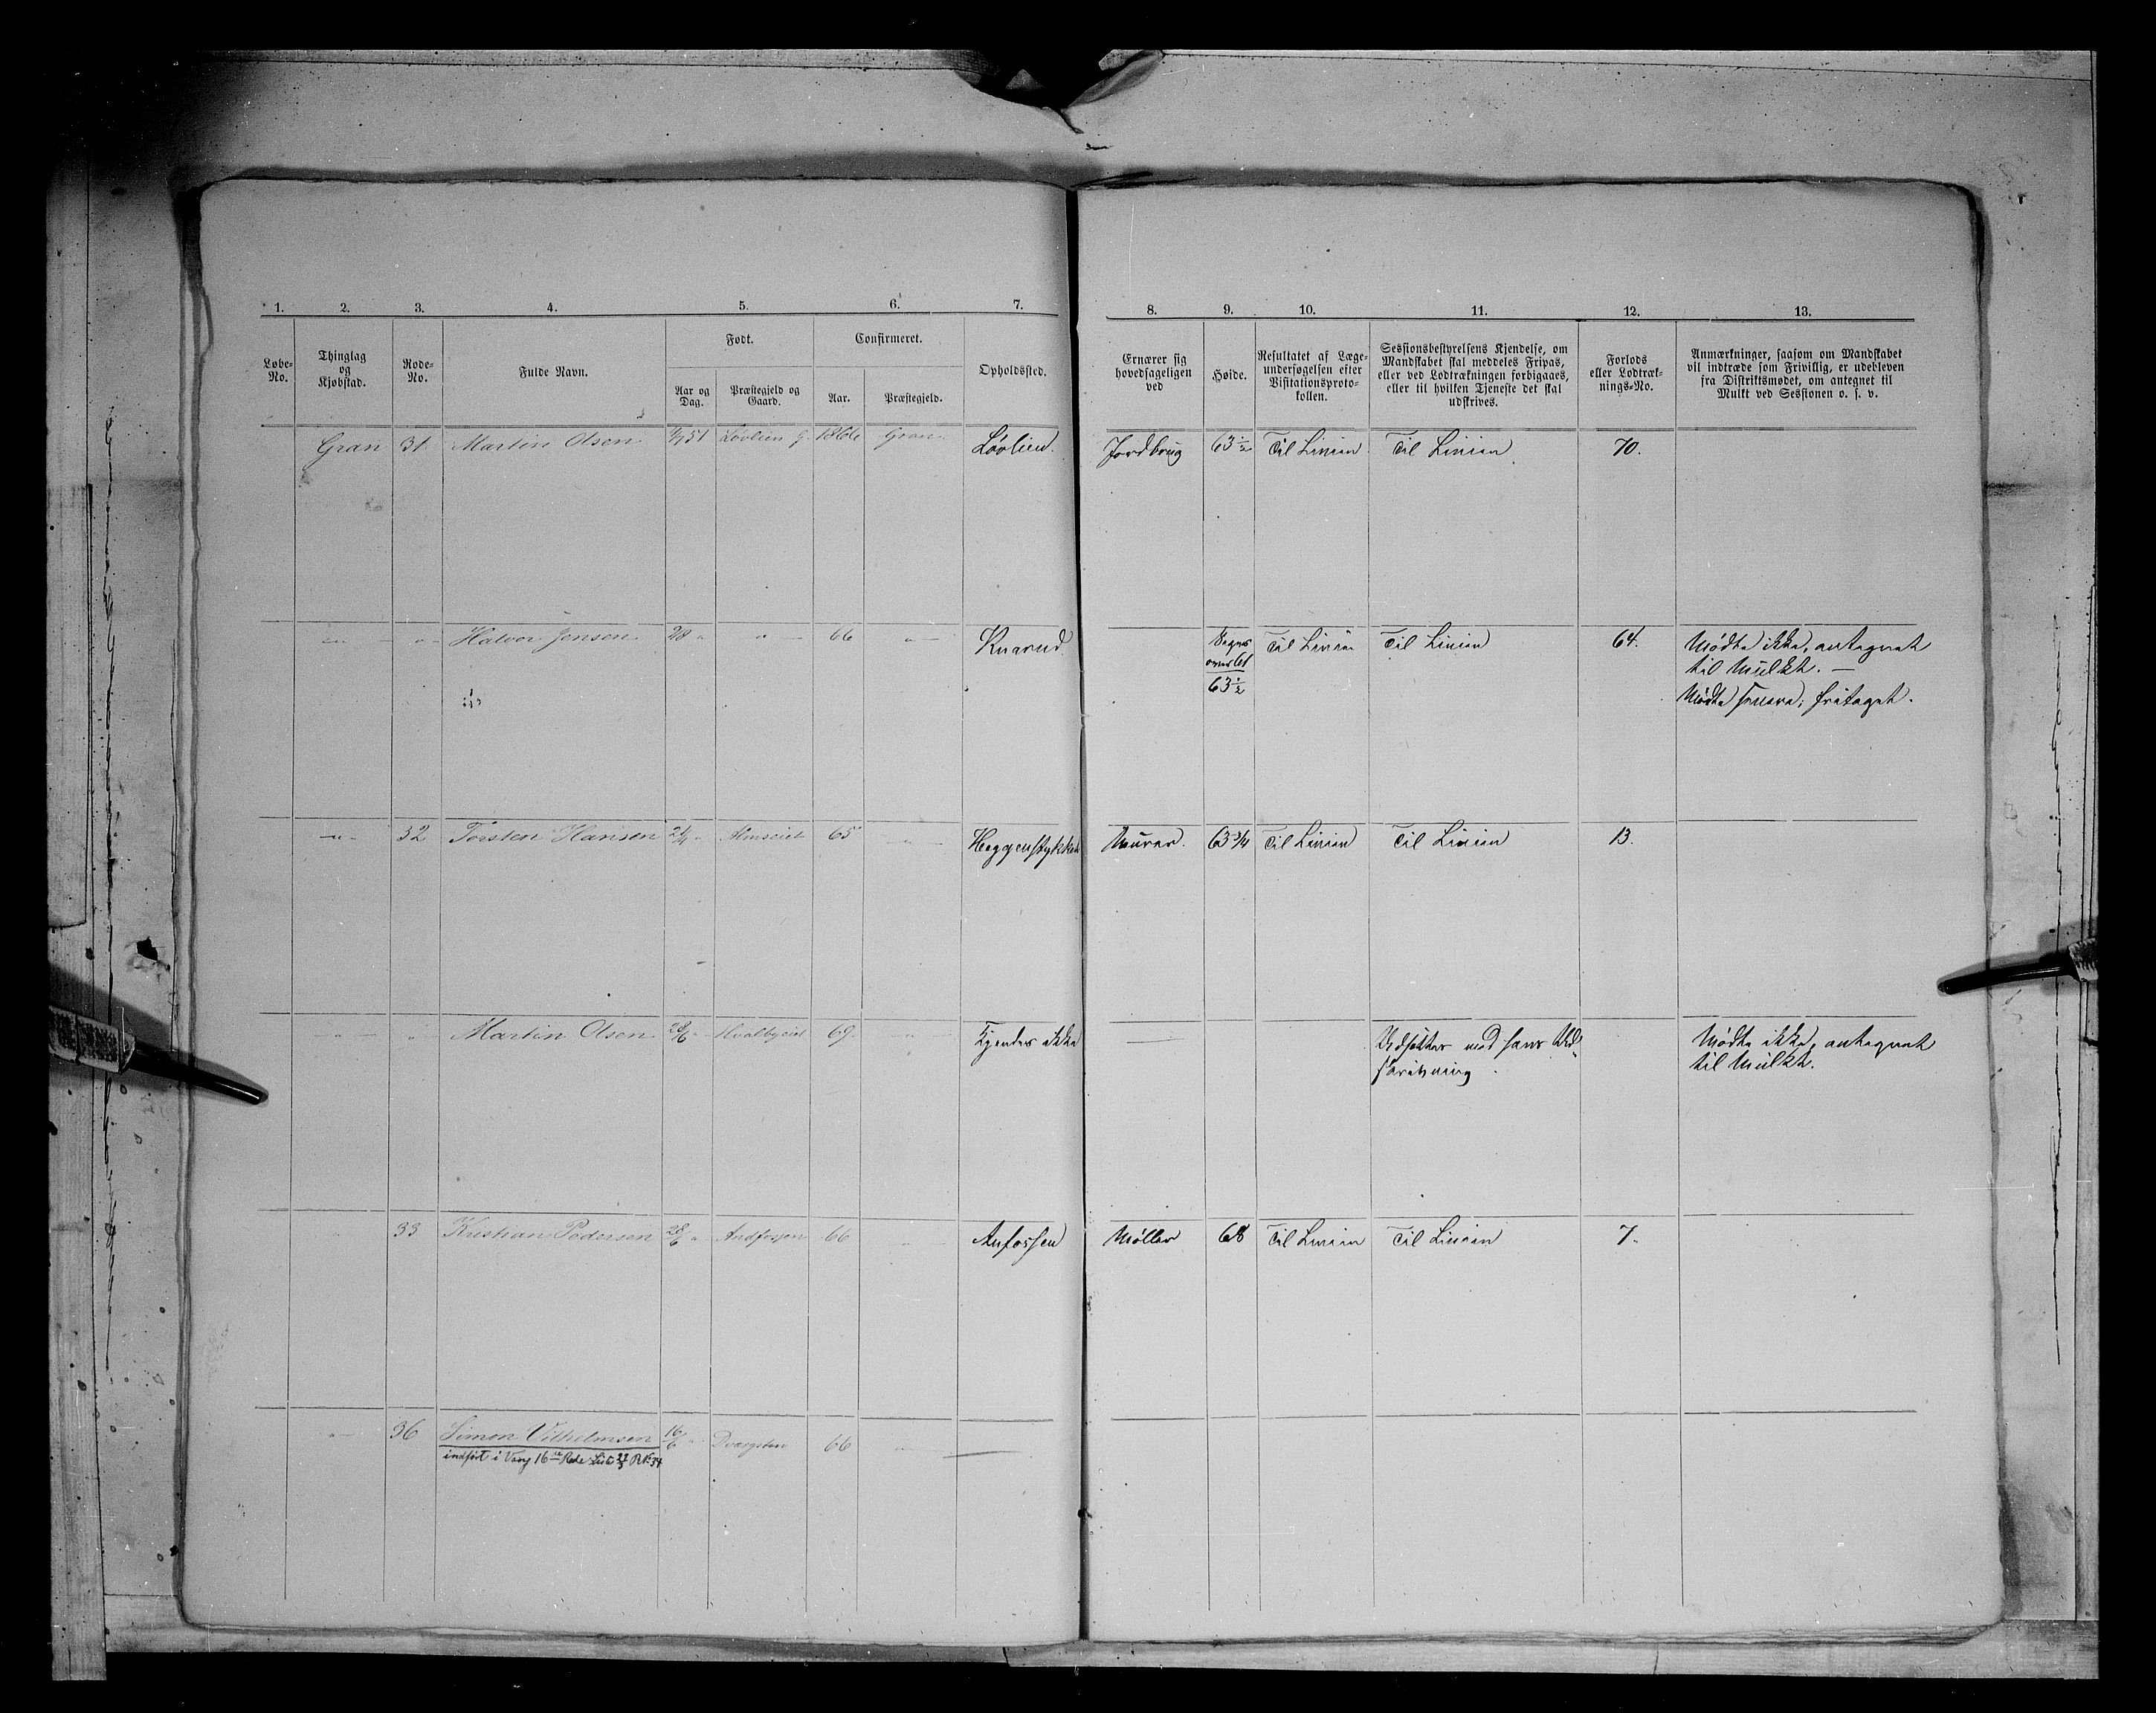 1. 2. 3. 4. 5. 6. 7. 8. 9. 10. 11. 12. 13.
Løbe-
No.
Thinglag
og
Kjøbstad.
Rode-
No.
Fulde Navn.
Født.
Aar og
Dag.
Præstegjeld og
Gaard.
Confirmeret.
Aar.
Præstegjeld.
Opholdssted.
Ernærer sig
hovedsageligen
ved
Høide.
Resultatet af Læge-
undersøgelsen efter
Visitationsproto-
kollen.
Sessionsbestyrelsens Kjendelse, om
Mandskabet skal meddeles Fripas,
eller ved Lodtrækningen forbigaaes,
eller til hvilken Tjeneste det skal
udskrives.
Forlods
eller Lodtræk-
nings-No.
Anmærkninger, saasom om Mandskabet
vil indtræde som Frivillig, er udebleven
fra Distriktsmødet, om antegnet til
Mulkt ved Sessionen o. s. v.
Gran 31 Martin Olsen 51 Løvlien g. 1866 Gran Løvlien Jordbrug 63 1/2 Til Linien Til Linien 70.
-"- " Halvor Jensen 2/8 " " 66 " Knarud Til Linien Til Linien 64. Mødte ikke, antegnet
over 61 til Mulkt. —
63 1/2 Mødte senere; fritaget.
-"- 32 Torsten Hansen " Almseiet 65 " Heggenstykket Murer. 63 3/4 Til Linien Til Linien 13.
" " Martin Olsen " Hvalbyeiet 69 " Kjendes ikke — Udsættes med hans Ud- Mødte ikke, antegnet
skrivning. til Mulkt.
" 33 Kristian Pedersen 28/6 " Andfossen 66 " Anfossen Møller 68 Til Linien Til Linien 7.
" 36 Simon Vilhelmsen 16/6 " Dvergsten 66 " —
indført i Vang 16de Rode